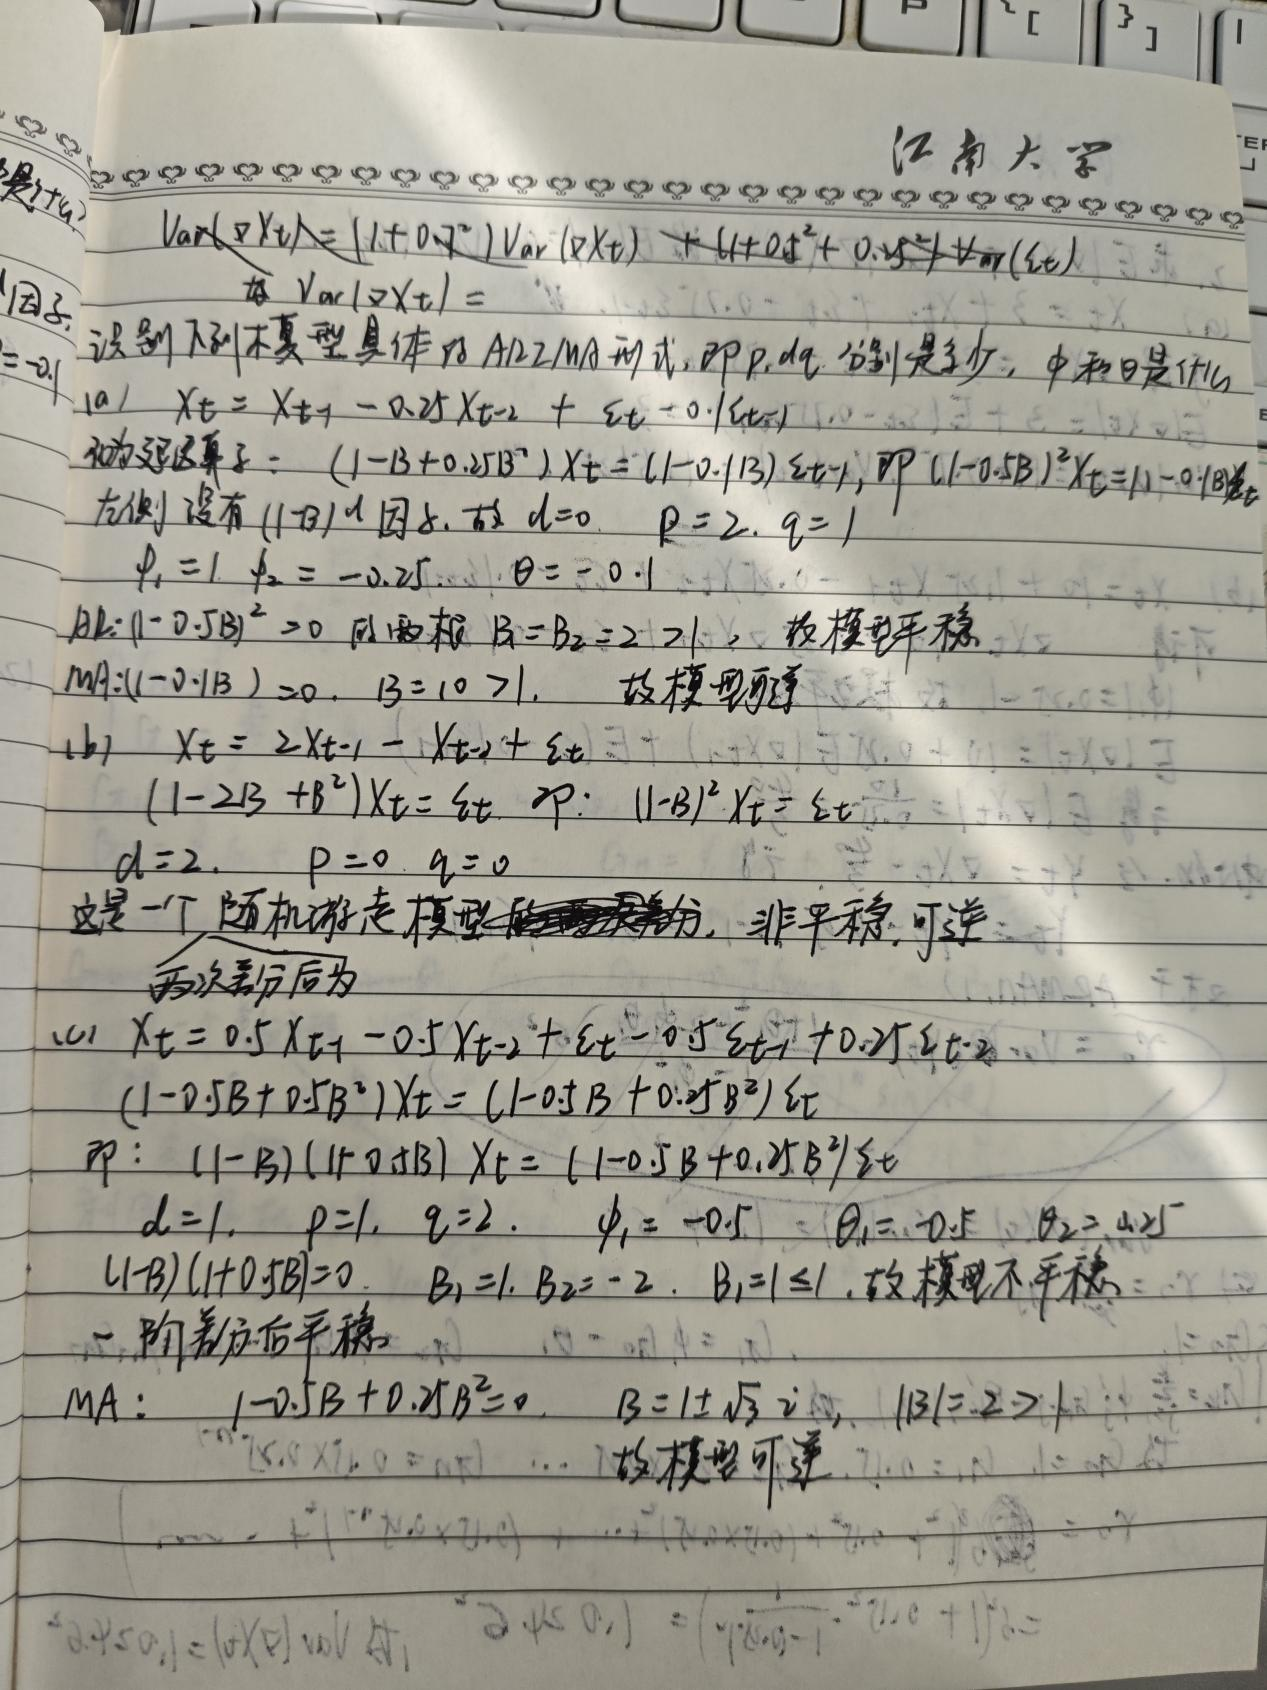 江南大学
Var(∇Xt) = (1+0.7²)Var(∇Xt) + (1+0.5²+0.25²)Var(εt)
故 Var(∇Xt) =
识别下列模型具体的ARIMA形式,即p,d,q分别是多少,φ和θ是什么
(a) Xt = Xt-1 - 0.25Xt-2 + εt - 0.1εt-1
(1-B+0.25B²)Xt = (1-0.1B)εt-1, 即 (1-0.5B)²Xt = (1-0.1B)εt
左侧没有(1-B)^d因子. 故 d=0. P=2. q=1
φ1=1. φ2=-0.25. θ=-0.1
AR:(1-0.5B)²=0 的两根 B1=B2=2>1, 故模型平稳
MA:(1-0.1B)=0. B=10>1. 故模型可逆
(b) Xt = 2Xt-1 - Xt-2 + εt
(1-2B+B²)Xt = εt 即: (1-B)²Xt = εt
d=2. P=0 q=0
这是一个随机游走模型 差分. 非平稳,可逆
两次差分后为
(c) Xt = 0.5Xt-1 - 0.5Xt-2 + εt - 0.5εt-1 + 0.25εt-2
(1-0.5B+0.5B²)Xt = (1-0.5B+0.25B²)εt
即: (1-B)(1+0.5B)Xt = (1-0.5B+0.25B²)εt
d=1. P=1. q=2. φ1=-0.5 θ1=-0.5 θ2=0.25
(1-B)(1+0.5B)=0. B1=1. B2=-2. B1=1≤1.故模型不平稳.
一阶差分后平稳
MA: 1-0.5B+0.25B²=0. B=1±√3i, |B|=2>1
故模型可逆
是什么?
因子.
=-0.1